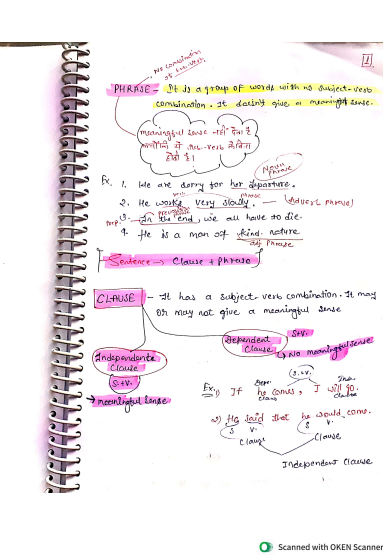 1
No combination
of sub. verb.
PHRASE - It is a group of words with no subject-verb
combination. It doesn't give a meaningful sense.
meaningful sense नहीं देता है
क्योंकि ये sub.-verb के बिना
होती है।
Noun
Phrase
Ex. 1. We are sorry for her departure.
2. He works very slowly. (Adverb phrase)
verb
phrase
Prep.
3. In the end, we all have to die.
4. He is a man of kind nature
adj Phrase
Sentence → Clause + Phrase
CLAUSE - It has a subject verb combination. It may
or may not give a meaningful sense
Dependent
Clause
S+V.
→ No meaningful sense
Independent
Clause
S.+V.
→ meaningful sense
S.V.
Ex. 1) If he comes, I will go.
Depe.
clause
Inde.
clause
2) He said that he would come.
S V. S V.
Clause Clause
Independent Clause
Scanned with OKEN Scanner